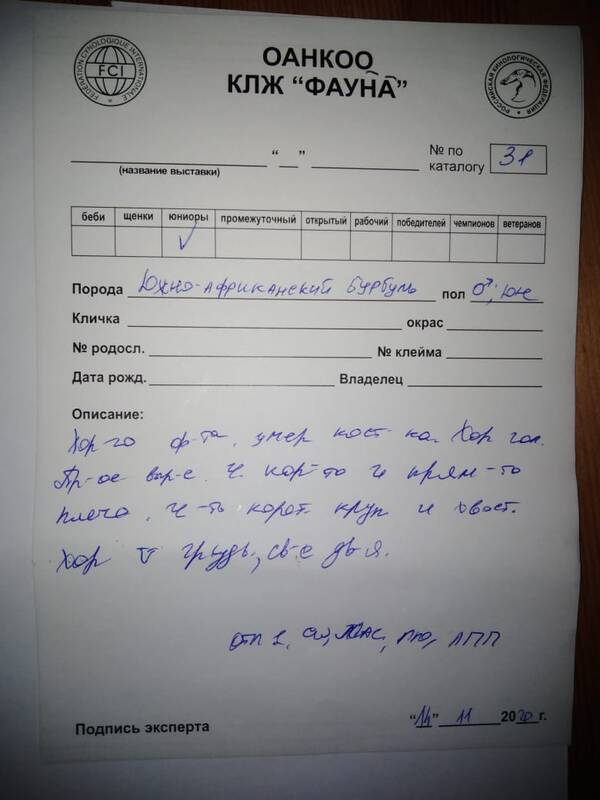 FEDERATION CYNOLOGIQUE INTERNATIONALE
FCI
ОАНКОО
КЛЖ “ФАУНА”
РОССИЙСКАЯ КИНОЛОГИЧЕСКАЯ ФЕДЕРАЦИЯ
“ ”
(название выставки)
№ по каталогу 31
беби щенки юниоры промежуточный открытый рабочий победителей чемпионов ветеранов
Порода Южно-африканский бурбуль пол ♂, юн
Кличка окрас
№ родосл. № клейма
Дата рожд. Владелец
Описание:
Хор-го ф-та, умер кост-ка. Хор гол.
Пр-ое выр-е. Ч. кор-то и прям-то
плечо. Ч-ть корот. круп и хвост.
Хор V грудь, св-е дв-я.
отл 1, CW, ЮСАС, ЛЮ, ЛПП
Подпись эксперта “14” 11 2020 г.